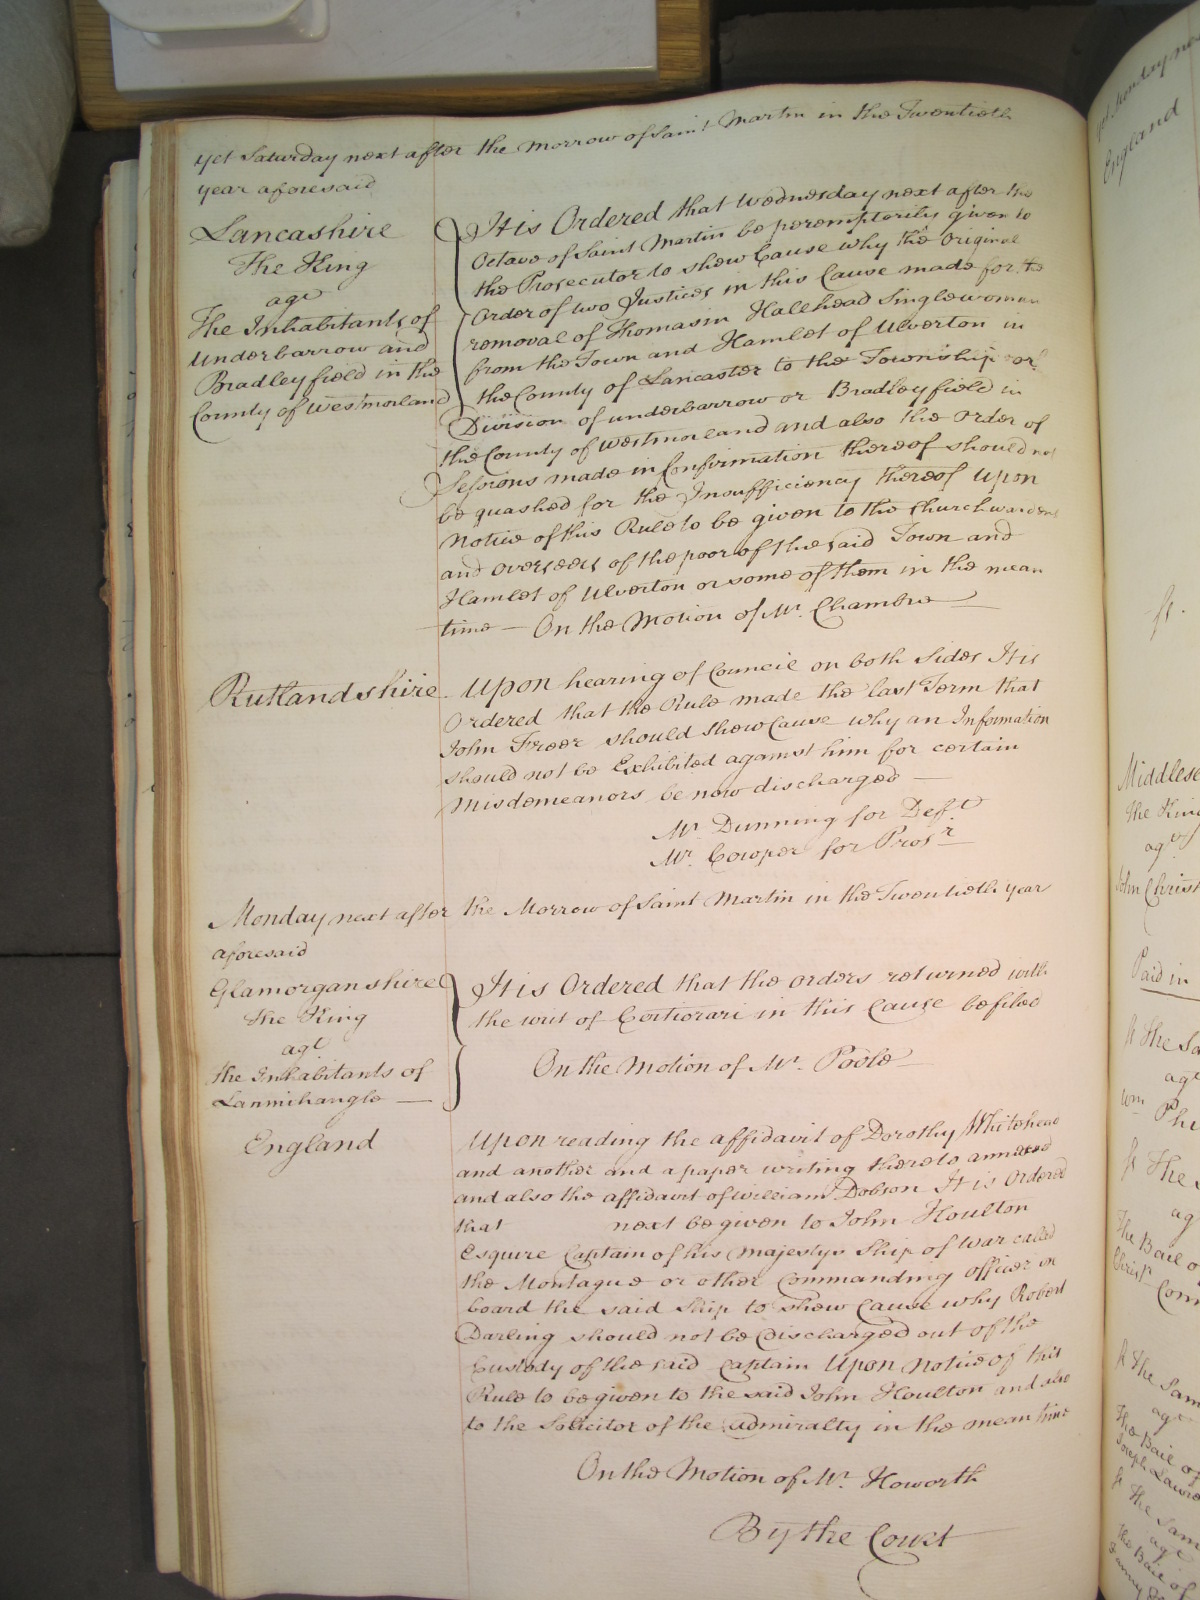 yet Saturday next after the Morrow of Saint Martin in the Twentieth
year aforesaid
Lancashire
The King
agt
The Inhabitants of
Underbarrow and
Bradleyfield in the
County of Westmorland
It is Ordered that Wednesday next after the
Octave of Saint Martin be peremptorily given to
the Prosecutor to shew Cause why the Original
Order of two Justices in this Cause made for the
removal of Thomasin Halehead Singlewoman
from the Town and Hamlet of Ulverton in
the County of Lancaster to the Township or
Division of underbarrow or Bradleyfield in
the County of Westmorland and also the Order of
Sessions made in Confirmation thereof should not
be quashed for the Insufficiency thereof Upon
Notice of this Rule to be given to the Churchwardens
and overseers of the poor of the said Town and
Hamlet of Ulverton or some of them in the mean
time — On the Motion of Mr. Chambre —
Rutlandshire
Upon hearing of Council on both Sides It is
Ordered that the Rule made the last Term that
John Freer should shew Cause why an Information
should not be Exhibited against him for certain
Misdemeanors be now discharged —
Mr. Dunning for Deft
Mr. Cowper for Prosr
Monday next after the Morrow of Saint Martin in the Twentieth year
aforesaid
Glamorganshire
The King
agt
the Inhabitants of
Lanmihangle —
It is Ordered that the orders returned with
the writ of Certiorari in this Cause be filed
On the Motion of Mr. Poole —
England
Upon reading the affidavit of Dorothy Whitehead
and another and a paper writing thereto annexed
and also the affidavit of William Dobson It is Ordered
that next be given to John Houlton
Esquire Captain of his Majestys Ship of War called
the Montague or other Commanding Officer on
board the said Ship to shew Cause why Robert
Darling should not be Discharged out of the
Custody of the said Captain Upon Notice of this
Rule to be given to the said John Houlton and also
to the Solicitor of the Admiralty in the mean time
On the Motion of Mr. Howorth
By the Court
England
Middlese
the King
agt
John Christ
Paid in
the Sa
agt
Wm Phi
The S
ag
The Bail o
Christ Conn
The Sam
agt
The Bail of
Joseph Lawre
The Sam
agt
the Bail of